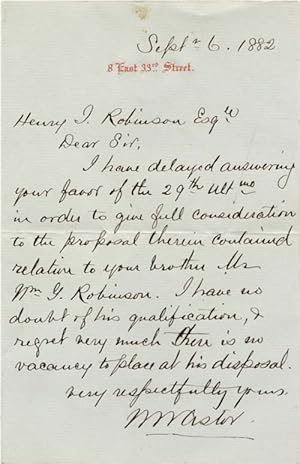 Septr 6. 1882
8 East 33rd Street.
Henry I. Robinson Esqre
Dear Sir,
I have delayed answering
your favor of the 29th Ultmo
in order to give full consideration
to the proposal therein contained
relation to your brother Mr
Wm G. Robinson. I have no
doubt of his qualification, &
regret very much there is no
vacancy to place at his disposal.
very respectfully yours,
WW Astor.